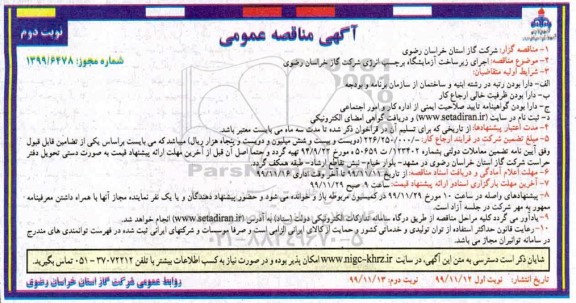 نوبت دوم
آگهی مناقصه عمومی
شماره مجوز: ۱۳۹۹/۶۴۷۸
۱- مناقصه گزار: شرکت گاز استان خراسان رضوی
۲- موضوع مناقصه: اجرای زیرساخت آزمایشگاه برچسب انرژی شرکت گاز خراسان رضوی
۳- شرایط اولیه متقاضیان:
الف- دارا بودن رتبه در رشته ابنیه و ساختمان از سازمان برنامه و بودجه
ب- دارا بودن ظرفیت خالی ارجاع کار
ج- دارا بودن گواهینامه تایید صلاحیت ایمنی از اداره کار و امور اجتماعی
د- ثبت نام در سایت (www.setadiran.ir) و دریافت گواهی امضای الکترونیکی
۴- مدت اعتبار پیشنهادها: از تاریخی که برای تسلیم آن در فراخوان ذکر شده تا مدت سه ماه می بایست معتبر باشد.
۵- مبلغ تضمین شرکت در فرایند ارجاع کار: -/۲۲۶/۲۵۰/۰۰۰ (دویست و بیست و شش میلیون و دویست و پنجاه هزار ریال) میباشد که می بایست براساس یکی از تضامین قابل قبول
وفق آیین نامه تضمین معاملات دولتی بشماره ۱۲۳۴۰۲/ت۵۰۶۵۹ه مورخ ۹۴/۹/۲۲ تهیه گردد و حتما اصل آن قبل از آخرین مهلت ارائه پیشنهاد قیمت به صورت دستی تحویل دفتر
حراست شرکت گاز استان خراسان رضوی در مشهد- بلوار خیام- نبش تقاطع ارشاد- طبقه همکف گردد.
۶- مهلت اعلام آمادگی و دریافت اسناد مناقصه: از تاریخ ۹۹/۱۱/۱۲ تا آخر وقت اداری ۹۹/۱۱/۱۶
۷- آخرین مهلت بارگزاری اسناد و ارائه پیشنهاد قیمت: ساعت ۹ صبح ۹۹/۱۱/۲۹
۸- پیشنهادهای واصله در ساعت ۱۰ مورخ ۹۹/۱۱/۲۹ در کمیسیون مربوطه باز و خوانده می شود و حضور پیشنهاد دهندگان و یا یک نفر نماینده مجاز آنها با همراه داشتن معرفینامه
ممهور به مهر شرکت در جلسه آزاد است.
۹- یادآور می گردد کلیه مراحل مناقصه از طریق درگاه سامانه تدارکات الکترونیکی دولت (ستاد) به آدرس (www.setadiran.ir) انجام خواهد شد.
۱۰- رعایت قانون حداکثر استفاده از توان تولیدی و خدماتی کشور و حمایت از کالای ایرانی الزامی است و صرفا موسسات و شرکتهای ایرانی ثبت شده در فهرست توانمندی های مندرج
در سامانه توانیران مجاز می باشد.
شایان ذکر است دسترسی به متن این آگهی، در سایت www.nigc-khrz.ir امکان پذیر بوده و در صورت نیاز به کسب اطلاعات بیشتر با تلفن ۳۷۰۷۲۲۱۲-۰۵۱ تماس بگیرید.
تاریخ انتشار: نوبت اول ۹۹/۱۱/۱۲ نوبت دوم: ۹۹/۱۱/۱۳
روابط عمومی شرکت گاز استان خراسان رضوی